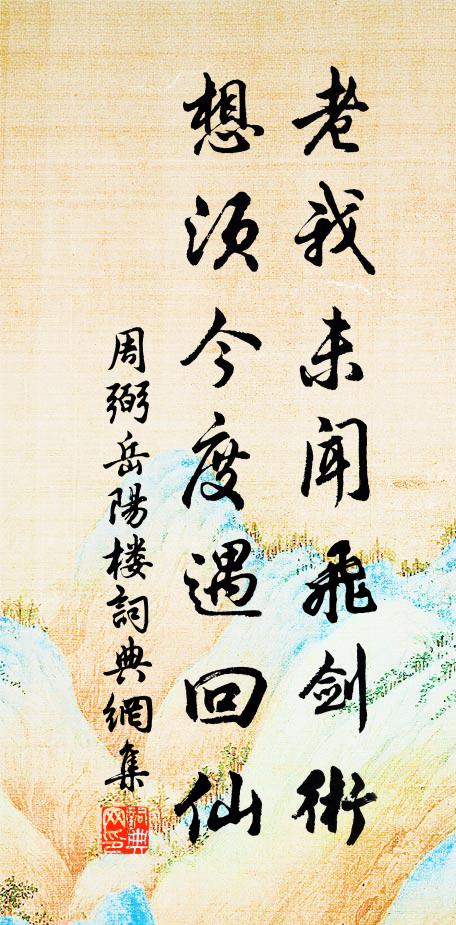 老我未闻飛剑術
想须今度遇回仙
周弼岳陽楼詞典網集
詞典